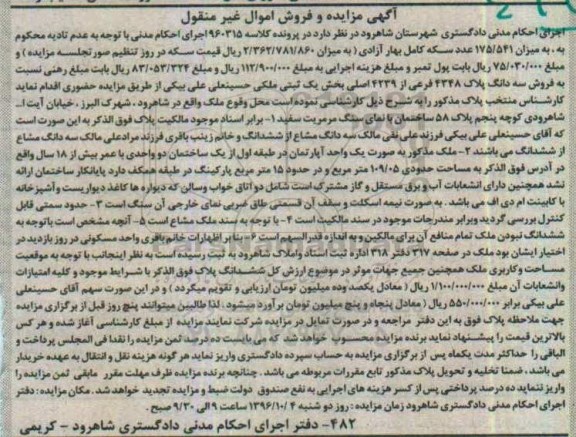 آگهی مزایده و فروش اموال غیر منقول
اجرای احکام مدنی دادگستری شهرستان شاهرود در نظر دارد در پرونده کلاسه ۹۶۰۳۱۵ اجرای احکام مدنی با توجه به عدم تادیه محکوم
به ، به میزان ۱۷۵/۵۴۱ عدد سکه کامل بهار آزادی ( به میزان ۲/۳۶۲/۷۸۱/۸۶۰ ریال قیمت سکه در روز تنظیم صورتجلسه مزایده ) و
مبلغ ۷۵/۰۳۰/۰۰۰ ریال بابت پول تمبر و مبلغ هزینه اجرایی به مبلغ ۱۱۲/۹۰۰/۰۰۰ ریال و مبلغ ۸۳/۰۵۳/۳۲۴ ریال بابت مبلغ رهنی نسبت
به فروش سه دانگ پلاک ۴۳۴۸ فرعی از ۴۲۳۹ اصلی بخش یک ثبتی ملکی حسینعلی علی بیکی از طریق مزایده حضوری اقدام نماید
کارشناس منتخب پلاک مذکور را به شرح ذیل کارشناسی نموده است محل وقوع ملک واقع در شاهرود ، شهرک البرز ، خیابان آیت ا...
شاهرودی کوچه پنجم پلاک ۵۸ ساختمان با نمای سنگ مرمریت سفید ۱- برابر اسناد موجود مالکیت پلاک فوق الذکر به این صورت است
که آقای حسینعلی علی بیکی فرزند علی نقی مالک سه دانگ مشاع از ششدانگ و خانم زینب باقری فرزند مرادعلی مالک سه دانگ مشاع
از ششدانگ می باشند ۲- ملک مذکور به صورت یک واحد آپارتمان در طبقه اول از یک ساختمان دو واحدی با عمر بیش از ۱۸ سال واقع
در آدرس فوق الذکر به مساحت حدودی ۱۰۹/۰۵ متر مربع و در حدود ۱۵ متر مربع پارکینگ در طبقه همکف دارد پایانکار ساختمان ارائه
نشد همچنین دارای انشعابات آب و برق مستقل و گاز مشترک است شامل دو اتاق خواب وسالن که دیواره ها کاغذ دیواریست و آشپزخانه
با کابینت ام دی اف می باشد . به صورت نیمه اسکلت و سقف آن قسمتی طاق ضربی نمای خارجی آن سنگ است ۳- حدود سمتی قابل
کنترل بررسی گردید وبرابر مندرجات موجود در سند مالکیت است ۴- با توجه به سند ملک مشاع است ۵- آنچه مشخص است باتوجه به
ششدانگ نبودن ملک تمام منافع آن برای مالکین و به اندازه قدرالسهم است ۶- بنابر اظهارات خانم باقری واحد مسکونی در روز بازدید در
اختیار ایشان بود ملک در صفحه ۳۱۷ دفتر ۳۱۸ اداره ثبت اسناد واملاک شاهرود به ثبت رسیده است به نظر اینجانب با توجه به موقعیت
مساحت وکاربری ملک همچنین جمیع جهات موثر در موضوع ارزش کل ششدانگ پلاک فوق الذکر با شرایط موجود و کلیه امتیازات
وانشعابات آن مبلغ ۱/۱۰۰/۰۰۰/۰۰۰ ریال ( معادل یکصد وده میلیون تومان ارزیابی و تقویم میگردد ) و در این صورت سهم آقای حسینعلی
علی بیکی برابر ۵۵۰/۰۰۰/۰۰۰ ریال ( معادل پنجاه و پنج میلیون تومان برآورد میشود . لذا طالبین میتوانند پنج روز قبل از برگزاری مزایده
جهت ملاحظه پلاک فوق به این دفتر مراجعه و در صورت تمایل در مزایده شرکت نمایند مزایده از مبلغ کارشناسی آغاز شده و هر کس
بالاترین قیمت را پیشنهاد نماید برنده مزایده محسوب خواهد شد که می بایست ده درصد ثمن مزایده را نقدا فی المجلس پرداخت و
الباقی را حداکثر مدت یکماه پس از برگزاری مزایده به حساب سپرده دادگستری واریز نماید هر گونه هزینه نقل و انتقال به عهده خریدار
می باشد ، ضمنا تخلیه و تحویل پلاک مذکور تابع مقررات مربوطه می باشد . چنانچه برنده مزایده ظرف مهلت مقرر مابقی ثمن مزایده را
واریز ننماید ده درصد پرداختی پس از کسر هزینه های اجرایی به نفع صندوق دولت ضبط و مزایده تجدید خواهد شد . مکان مزایده : دفتر
اجرای احکام مدنی دادگستری شاهرود زمان مزایده : روز دو شنبه ۱۳۹۶/۱۰/۴ ساعت ۹ الی ۹/۳۰ صبح .
۴۸۲- دفتر اجرای احکام مدنی دادگستری شاهرود - کریمی